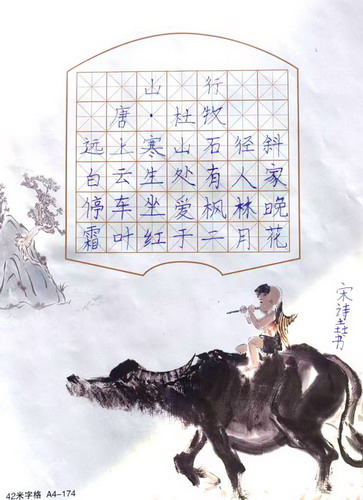 山行
唐·杜牧
远上寒山石径斜
白云生处有人家
停车坐爱枫林晚
霜叶红于二月花
宋诗垚书
42米字格 A4-174